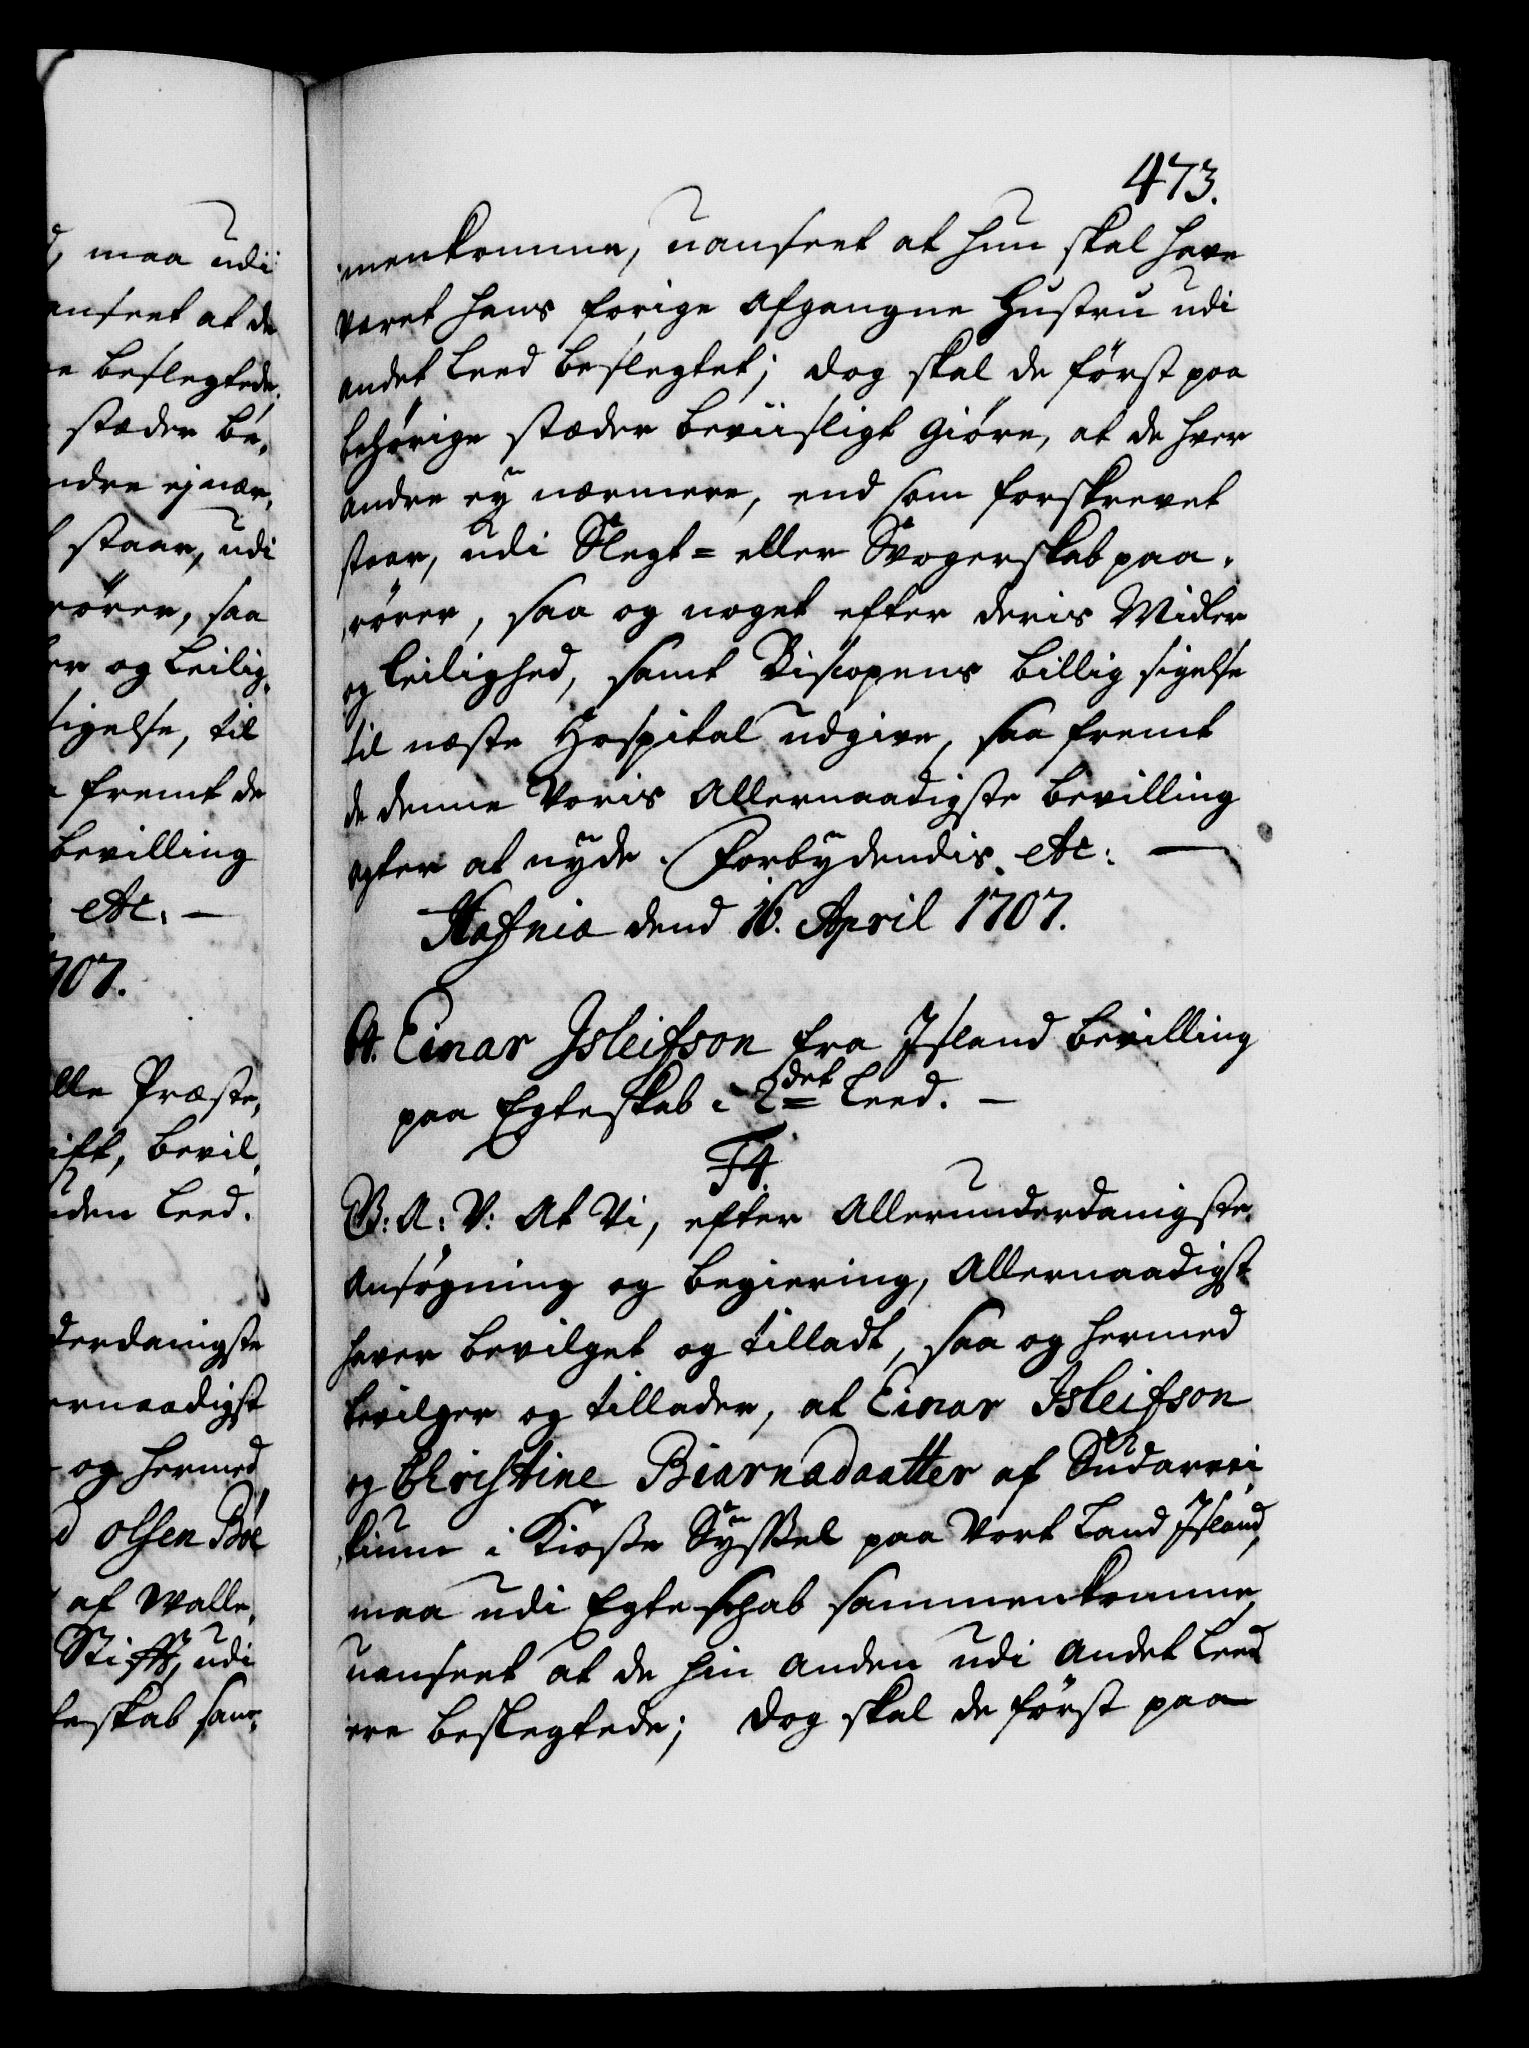 d, maa udi
anseet at de
re beslegtede.
stæder be,
ndre ej nær,
staar, udi
rører, saa
er og Leilig,
sigelse, til
a fremt de
bevilling
etc. —
707.
lle Præste,
ift, bevil,
nden Leed.
derdanigste
ernaadigst
og hermed
d Olsen Böe
af Walle,
Stifft, udi
teskab sam¬
473.
menkomme, uanseet at hun skal have
været hans forige afgangne Hustru udi
andet Leed beslegtet; dog skal de først paa
behørige stæder beviisligt giøre, at de hver
andre ey nærmere, end som forskrevet
staar, udi Slegt= eller Svogerskab paa,
rører, saa og noget efter deris Midler
og Leilighed, samt Biscopens billig sigelse
til næste Hospital udgive, saa fremt
de denne Voris Allernaadigste bevilling
agter at nyde. Forbydendis etc: —
Hafniæ dend 16. April 1707.
At. Einar Jsleifson fra Jsland bevilling
paa Egteskab i 2det Leed. —
F4.
G: A: V: At Vi, efter Allerunderdanigste
Ansøgning og begiering, Allernaadigst
haver bevilget og tilladt, saa og hermed
bevilger og tillader, at Einar Jsleifson
og Christine Biarnadaatter af Sudarrei,
kium i Kiosse Syssel paa Vort Land Jsland,
maa udi Egteschab sammenkomme,
uanseet at de hin anden udi andet Leed
ere beslegtede; dog skal de først paa